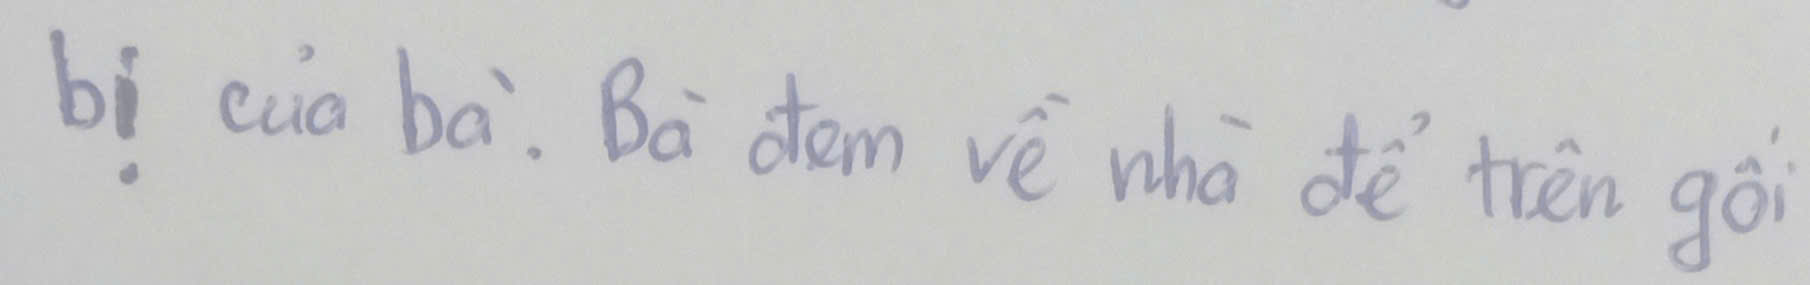 bị của bà. Bà đem về nhà để trên gối